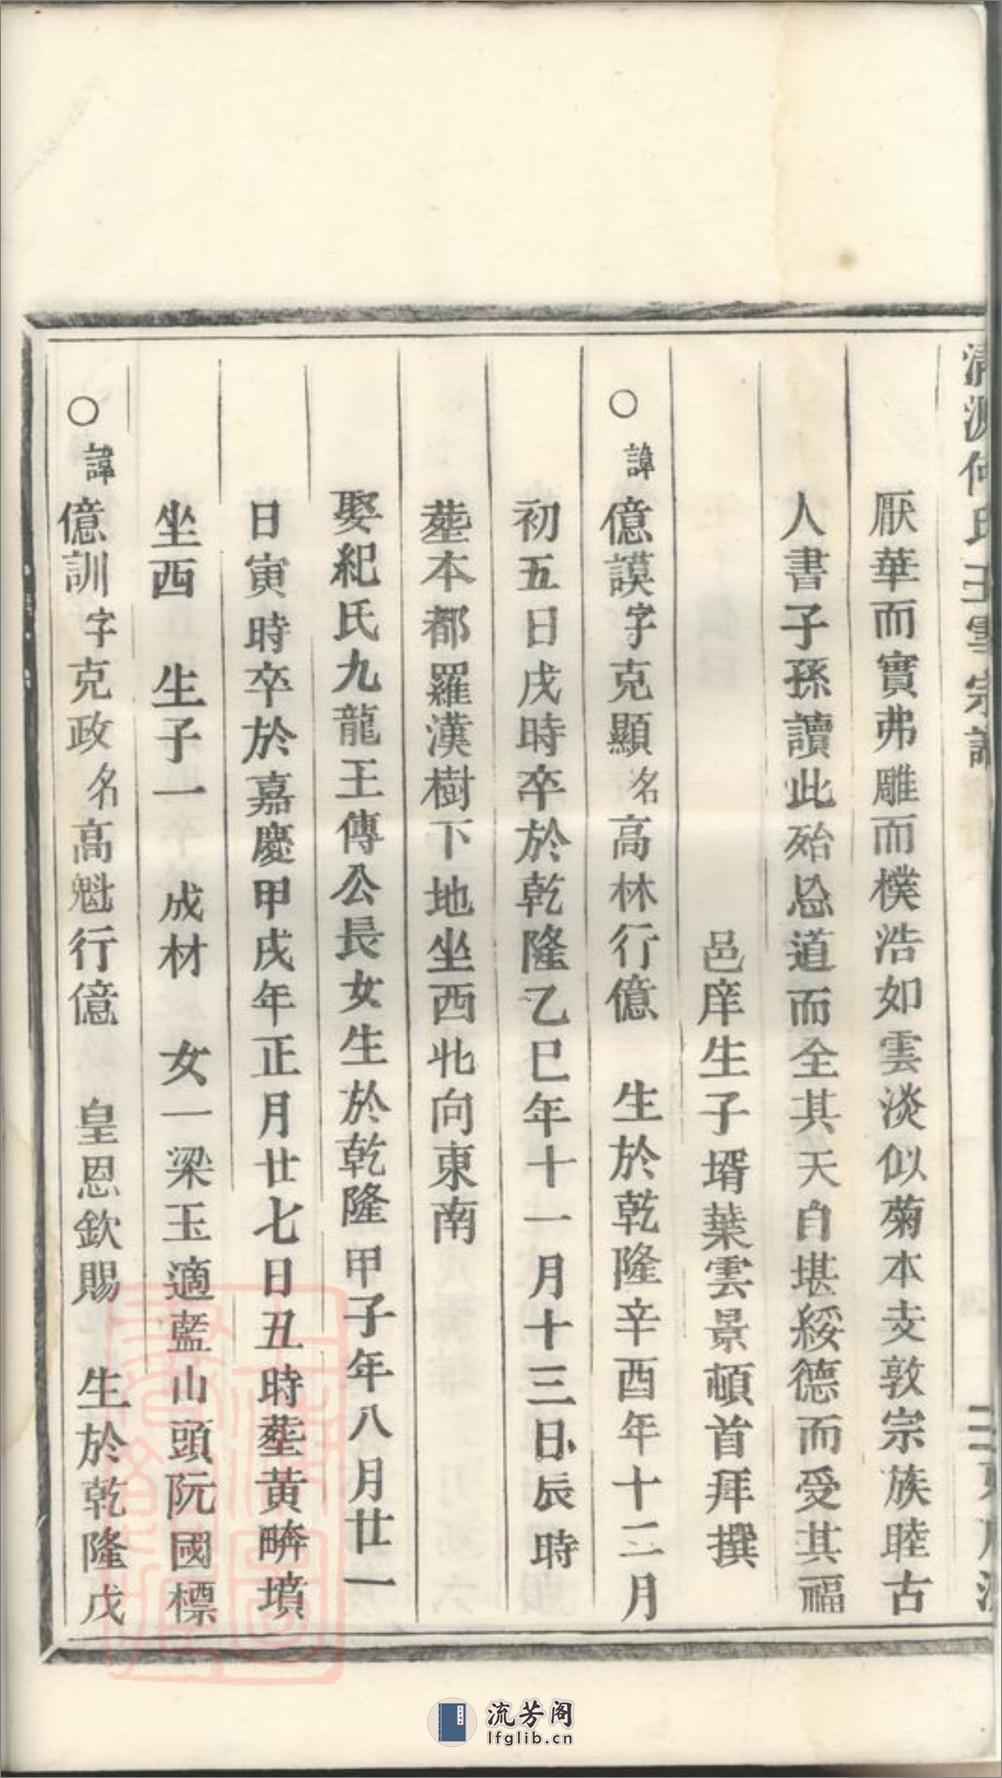 清源何氏玉雪宗譜
厭華而實弗雕而樸浩如雲淡似菊本支敦宗族睦古
人書子孫讀此殆忩道而全其天自堪綏德而受其福
邑庠生子壻葉雲景頓首拜撰
○諱億謨字克顯名高林行億 生於乾隆辛酉年十二月
初五日戌時卒於乾隆乙巳年十一月十三日辰時
塟本都羅漢樹下地坐西北向東南
娶紀氏九龍王傳公長女生於乾隆甲子年八月廿一
日寅時卒於嘉慶甲戌年正月廿七日丑時塟黃畊墳
坐西 生子一 成材 女一梁玉適藍山頭阮國標
○諱億訓字克政名高魁行億 皇恩欽賜 生於乾隆戊
流芳阁
lfglib.cn